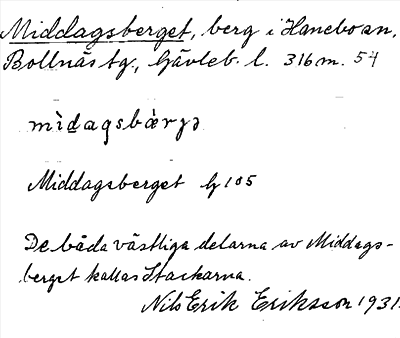 Middagsberget, berg i Haneboan,
Bollnäs tg, Gävleb. l. 316 m. 54
mìdagsbæ̀rjə
Middagsberget G 105
De båda västliga delarna av Middags-
berget kallas Stackarna.
Nils Erik Eriksson 1931.